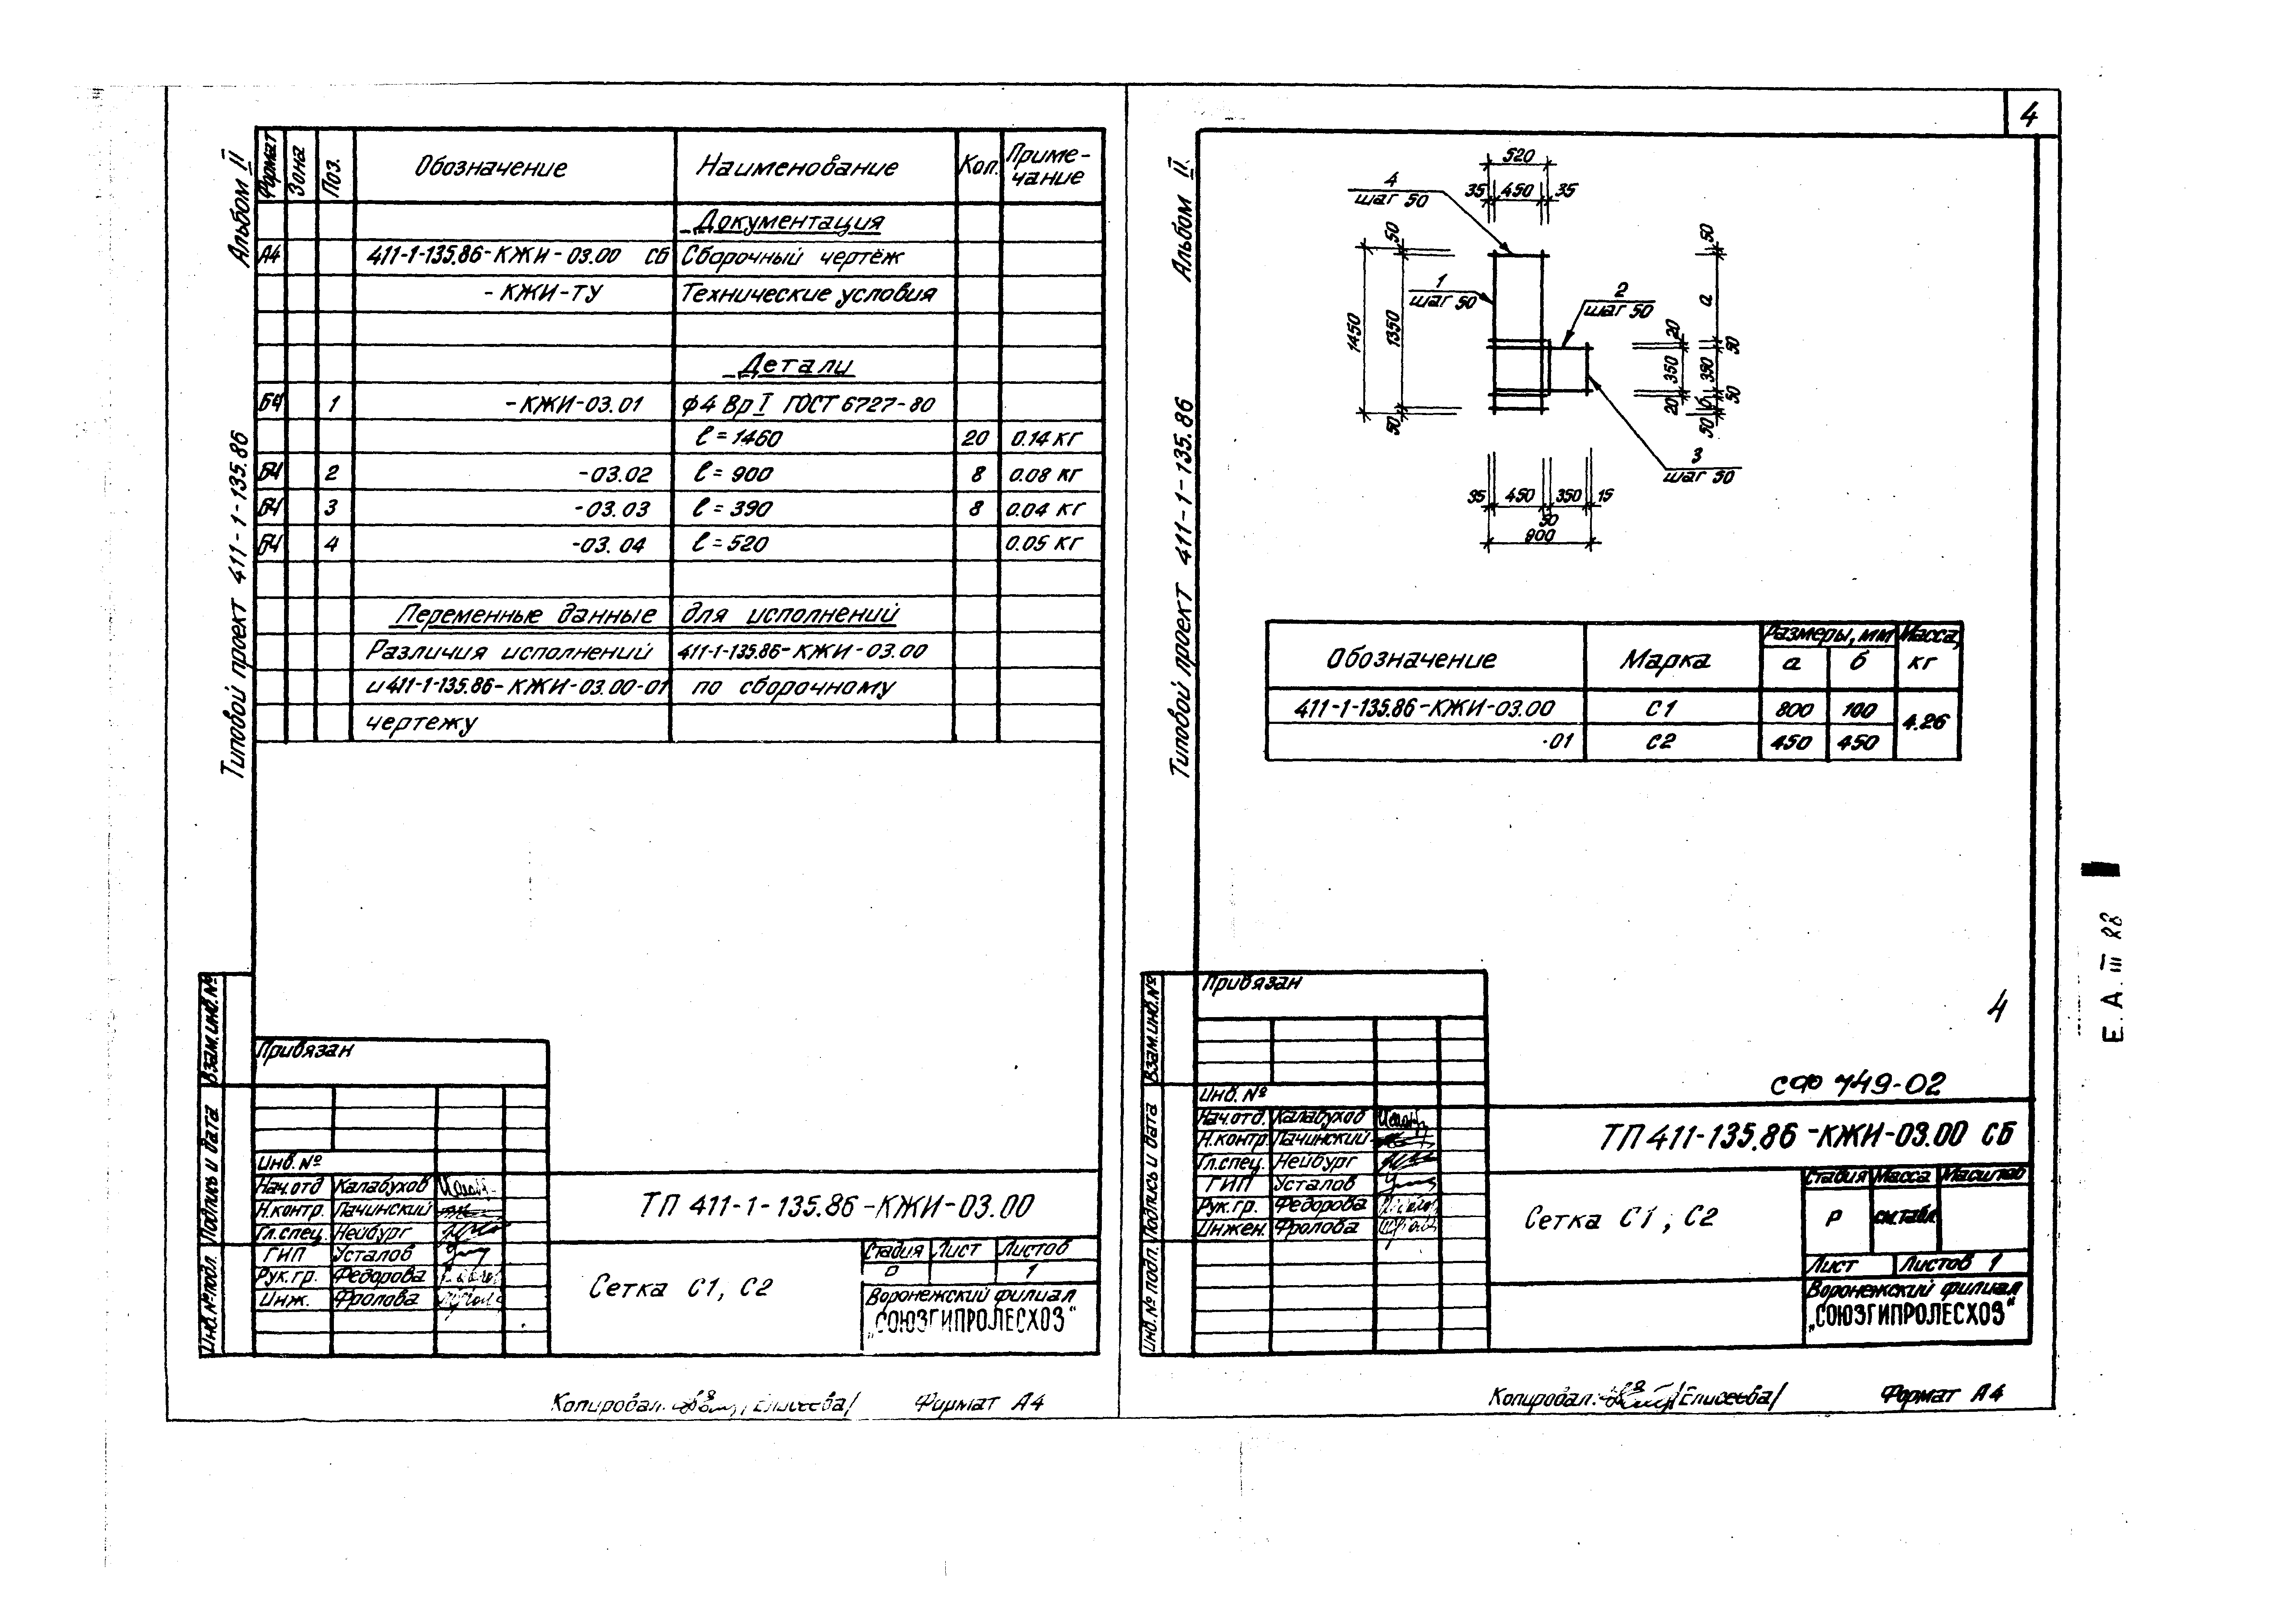 Альбом II
Типовой проект 411-1-135.86
Формат Зона Поз. Обозначение Наименование Кол. Приме-
чание
Документация
А4 411-1-135.86-КЖИ-03.00 СБ Сборочный чертёж
-КЖИ-ТУ Технические условия
Детали
БЧ 1 -КЖИ-03.01 ф4 Вр I ГОСТ 6727-80
ℓ=1460 20 0.14 кг
БЧ 2 -03.02 ℓ=900 8 0.08 кг
БЧ 3 -03.03 ℓ=390 8 0.04 кг
БЧ 4 -03.04 ℓ=520 0.05 кг
Переменные данные для исполнений
Различия исполнений 411-1-135.86-КЖИ-03.00
и 411-1-135.86-КЖИ-03.00-01 по сборочному
чертежу
Взам.инв.№
Подпись и дата
Инв.№подл.
Привязан
Инв.№
Нач.отд Калабухов
Н.контр. Лачинский
Гл.спец. Нейбург
ГИП Усталов
Рук.гр. Федорова
Инж. Фролова
ТП 411-1-135.86-КЖИ-03.00
Сетка С1, С2
Стадия Лист Листов
Р 1
Воронежский филиал
„СОЮЗГИПРОЛЕСХОЗ“
Копировал: /Елисеева/ Формат А4
4
Альбом II
Типовой проект 411-1-135.86
520
35 450 35
4
шаг 50
1
шаг 50
2
шаг 50
3
шаг 50
1450
50
1350
50
20
350
20
50
а
50
350
50
б
50
35 450 350 15
50
900
Обозначение Марка Размеры, мм Масса,
а б кг
411-1-135.86-КЖИ-03.00 С1 800 100 4.26
-01 С2 450 450
Взам.инв.№
Подпись и дата
Инв.№ подл.
Привязан
Инв. №
4
СФ 749-02
Нач.отд. Калабухов
Н.контр. Лачинский
Гл.спец. Нейбург
ГИП Усталов
Рук.гр. Федорова
Инжен. Фролова
ТП 411-135.86-КЖИ-03.00 СБ
Сетка С1, С2
Стадия Масса Масштаб
Р см.табл.
Лист Листов 1
Воронежский филиал
„СОЮЗГИПРОЛЕСХОЗ“
Копировал: /Елисеева/ Формат А4
Е. А. III